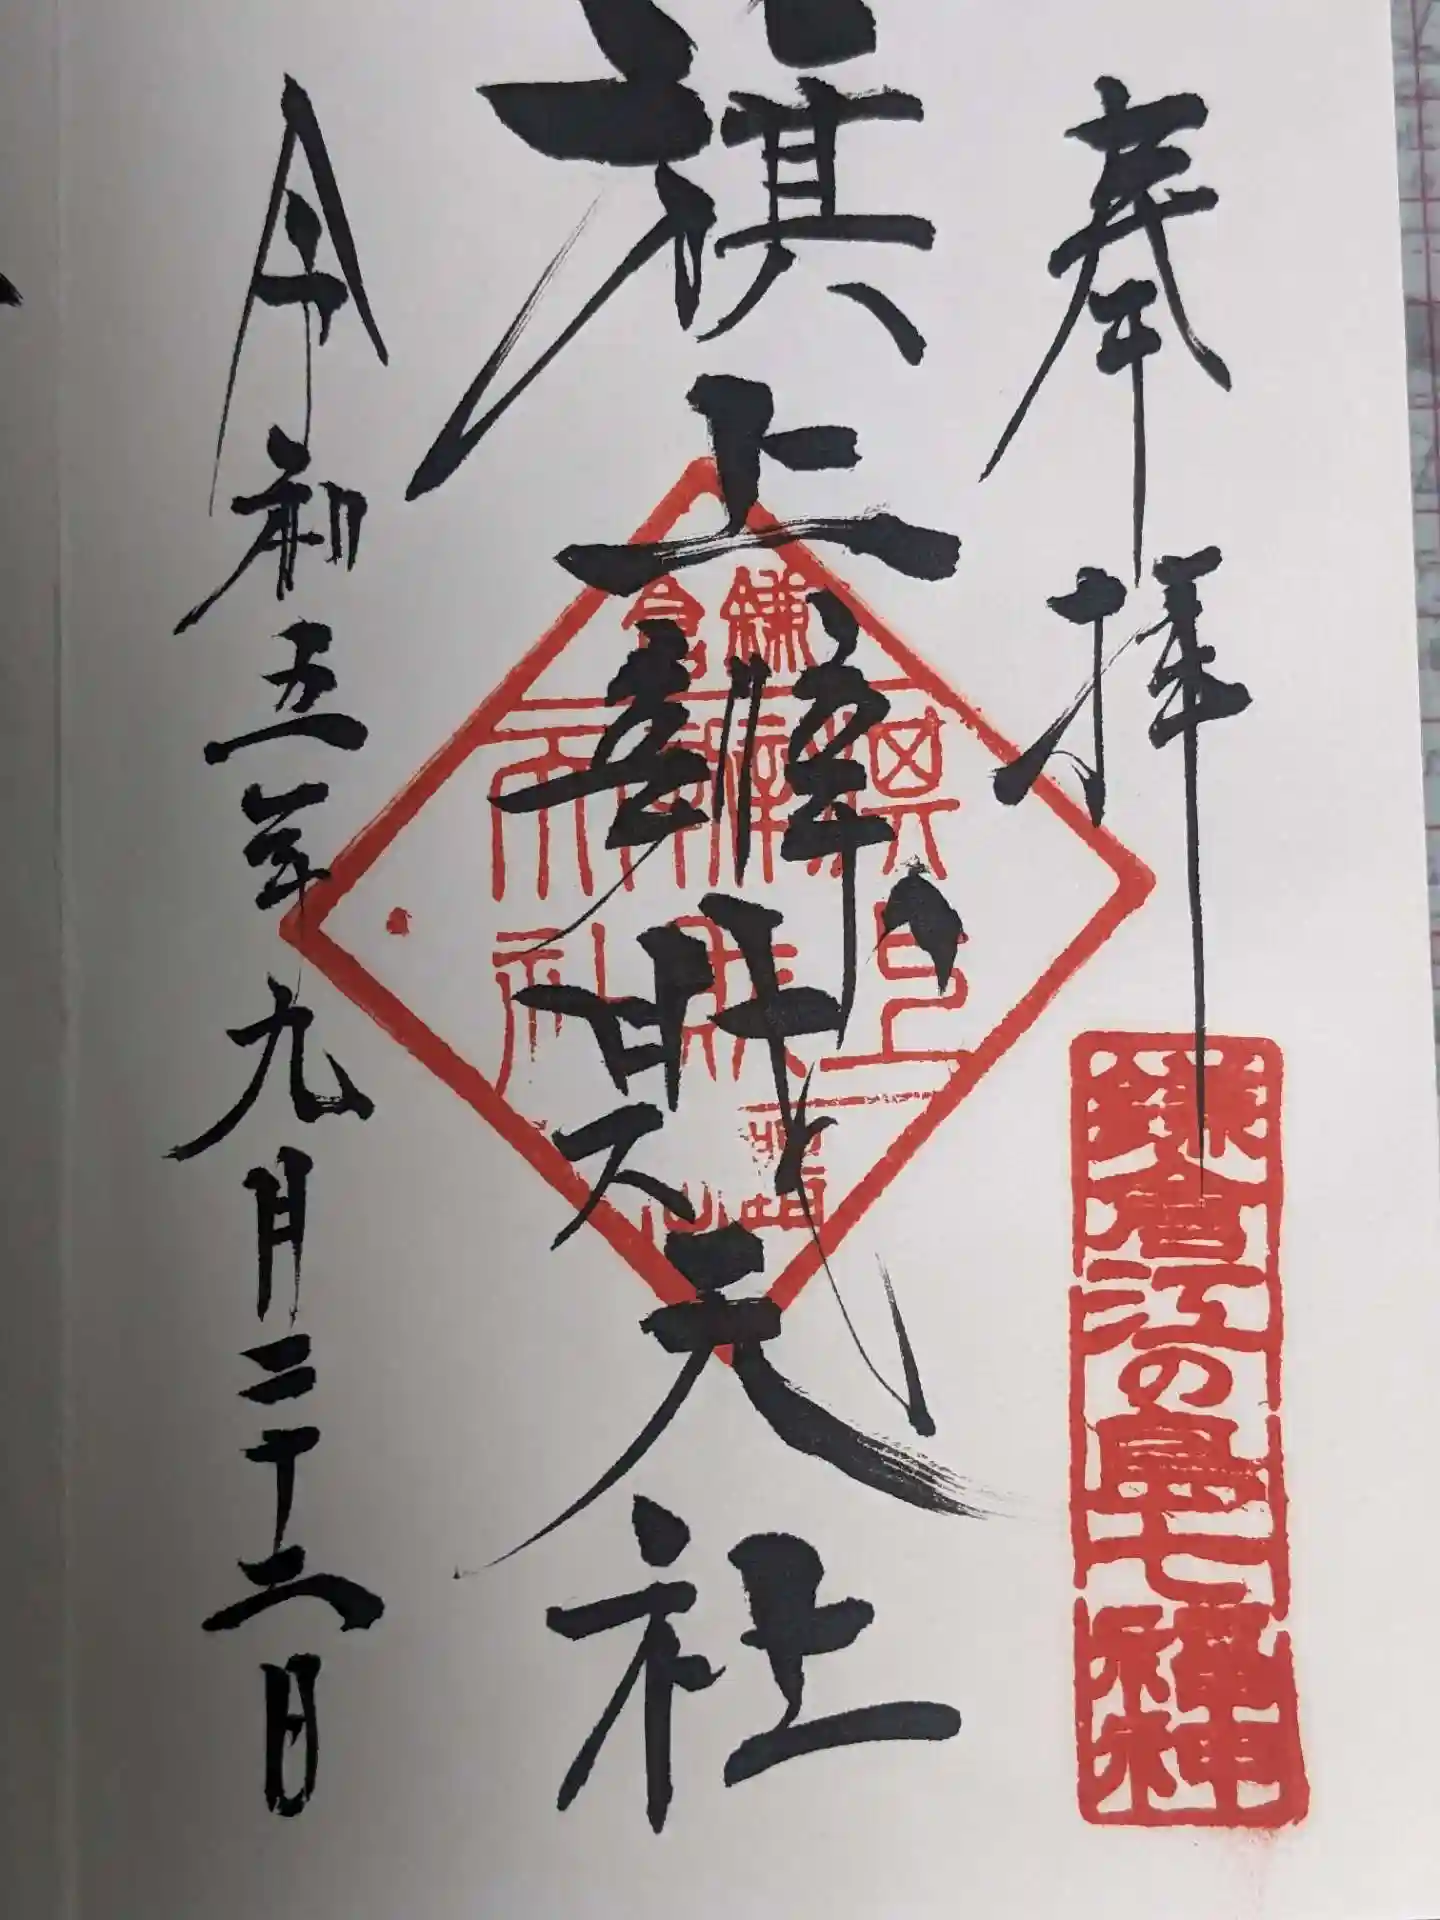 奉拝
鎌倉江の島七福神
旗上辨財天社
鎌倉
旗上
辨財
天社
令和五年九月二十二日